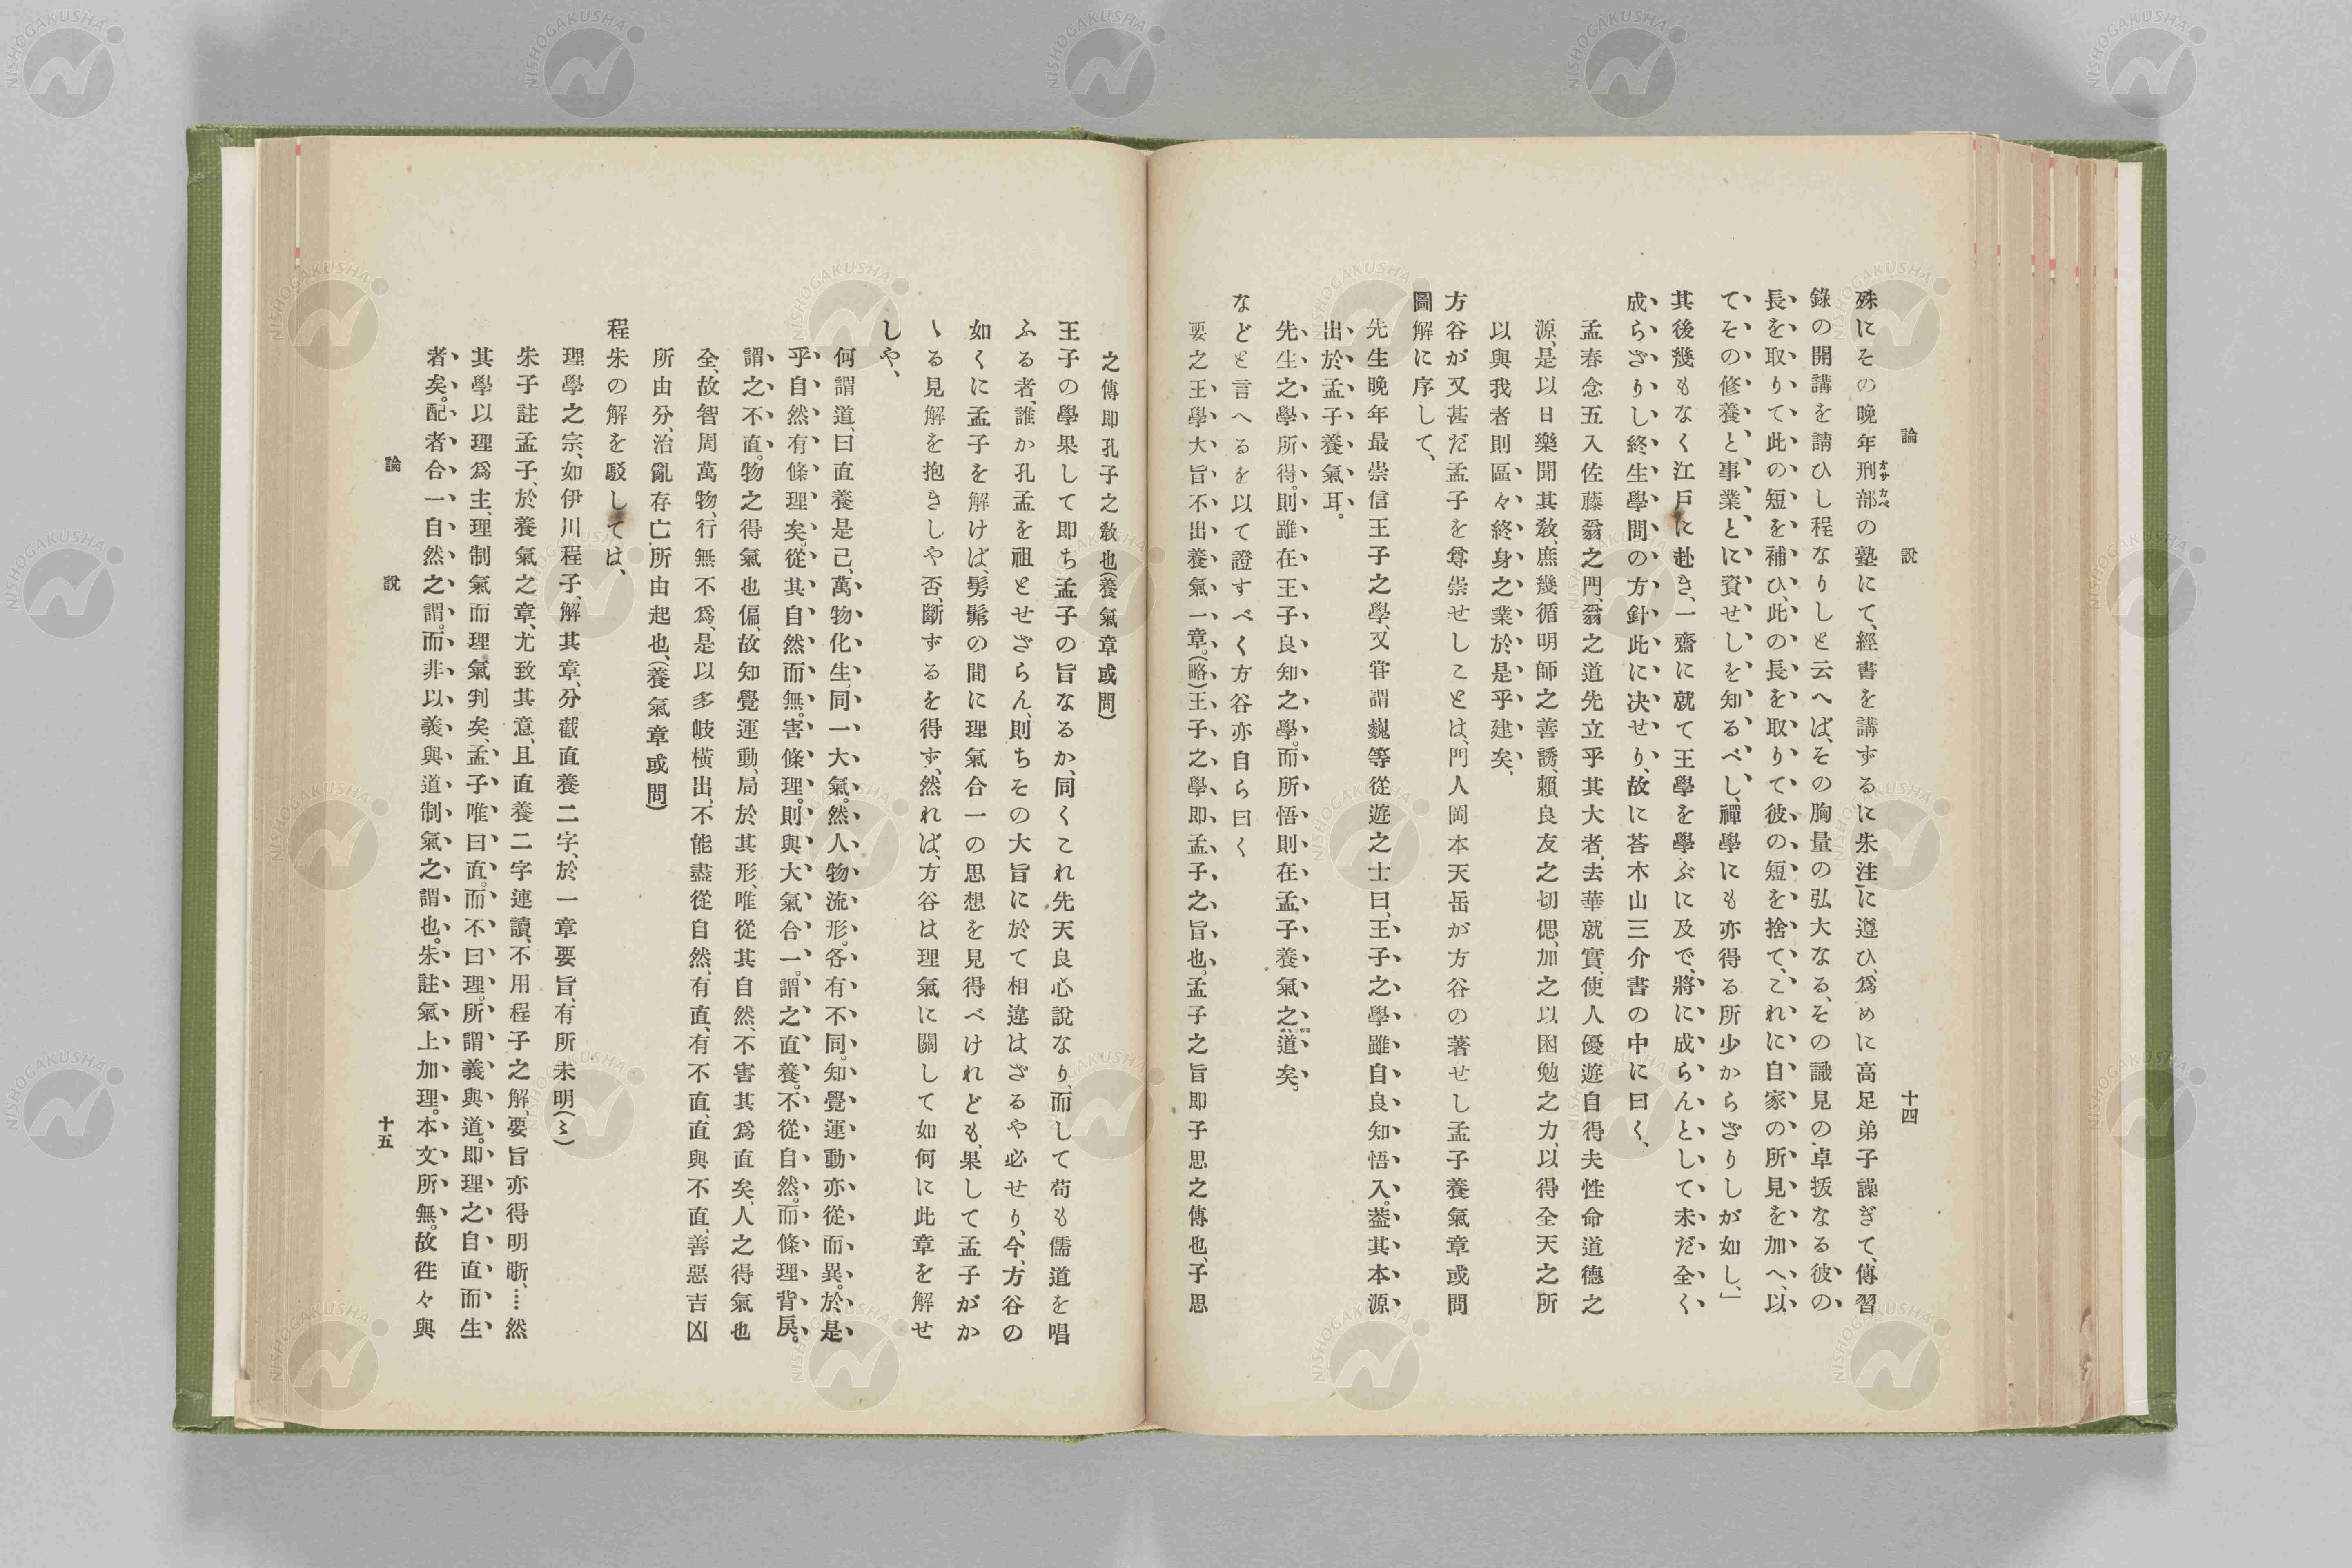 論説
十四
殊にその晩年刑部の塾にて、經書を講ずるに朱注に遵ひ、爲めに高足弟子譟ぎて、傳習
オサカベ
錄の開講を請ひし程なりしと云へば、その胸量の弘大なる、その識見の卓拔なる彼の
長を取りて此の短を補ひ、此の長を取りて彼の短を捨て、これに自家の所見を加へ、以
てその修養と事業とに資せしを知るべし、禪學にも亦得る所少からざりしが如し、」
其後幾もなく江戶に赴き、一齋に就て王學を學ぶに及で、將に成らんとして未だ全く
成らざりし終生學問の方針此に决せり、故に荅木山三介書の中に曰く、
孟春念五入佐藤翁之門、翁之道先立乎其大者、去華就實、使人優遊自得夫性命道德之
源、是以日樂聞其敎、庶幾循明師之善誘、賴良友之切偲、加之以困勉之力、以得全天之所
以與我者則區々終身之業於是乎建矣、
方谷が又甚だ孟子を尊崇せしことは、門人岡本天岳が方谷の著せし孟子養氣章或問
圖解に序して、
先生晩年最崇信王子之學、又甞謂巍等從遊之士曰、王子之學雖自良知悟入。葢其本源
出於孟子養氣耳。
先生之學所得。則雖在王子良知之學。而所悟則在孟子養氣之道矣。
などと言へるを以て證すべく方谷亦自ら曰く
要之王學大旨不出養氣一章。(略)王子之學即孟子之旨也。孟子之旨即子思之傳也、子思
之傳即孔子之敎也(養氣章或問)
王子の學果して即ち孟子の旨なるか、同くこれ先天良心說なり、而して苟も儒道を唱
ふる者、誰か孔孟を祖とせざらん、則ちその大旨に於て相違はざるや必せり、今、方谷の
如くに孟子を解けば、髣髴の間に理氣合一の思想を見得べけれども、果して孟子がか
ゝる見解を抱きしや否、斷ずるを得ず、然れば、方谷は理氣に關して如何に此章を解せ
しや、
何謂道、曰直養是已、萬物化生、同一大氣。然人物流形。各有不同。知覺運動亦從而異。於是
乎自然有條理矣。從其自然而無。害條理。則與大氣合一。謂之直養。不從自然。而條理背戾。
謂之不直。物之得氣也偏、故知覺運動、局於其形、唯從其自然、不害其爲直矣、人之得氣也
全、故智周萬物、行無不爲、是以多岐橫出、不能盡從自然、有直、有不直、直與不直、善惡吉凶
所由分、治亂存亡所由起也、(養氣章或問)
程朱の解を駁しては、
理學之宗、如伊川程子、解其章、分截直養二字、於一章要旨、有所未明(〻)
朱子註孟子、於養氣之章、尤致其意、且直養二字連讀、不用程子之解、要旨亦得明晣、……然
其學以理爲主、理制氣而理氣判矣、孟子唯曰直。而不曰理。所謂義與道。即理之自直而生
者矣。配者合一自然之謂。而非以義與道制氣之謂也。朱註氣上加理。本文所無。故徃々與
論說
十五